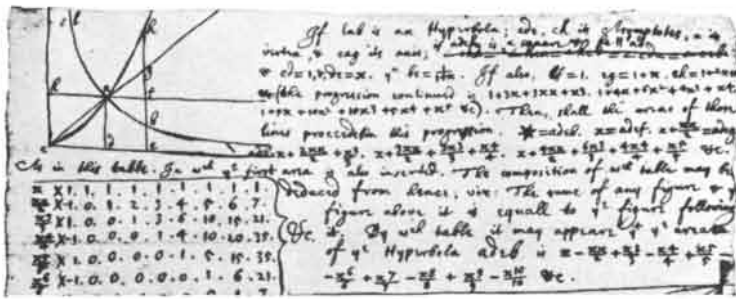 If lab is an Hyperbola; cde, ck its Asymptotes, a its
vertex, & cag its axis;
& cd=1, & de=x. yⁿ be=1/(1+x). If also, ef=1. eg=1+x. eh=1+2x+xx
&c (the progression continued is 1+3x+3xx+x³. 1+4x+6x²+4x³+x⁴.
1+5x+10x²+10x³+5x⁴+x⁵ &c). Then, shall the areas of those
lines proceede in this progression. *=adeb. x=adef. x+xx/2=adeg
x+2xx/2+x³/3. x+3xx/2+3x³/3+x⁴/4. x+4xx/2+6x³/3+4x⁴/4+x⁵/5 &c.
As in this table. In wᶜʰ yᵉ first area is also inserted. The composition of wᶜʰ table may be
deduced from hence, viz: The sume of any figure & yᵉ
figure above it is equall to yᵉ figure following
&c it. By wᶜʰ table it may appeare yᵗ yᵉ area
of yᵉ Hyperbola adeb is x-xx/2+x³/3-x⁴/4+x⁵/5
-x⁶/6+x⁷/7-x⁸/8+x⁹/9-x¹⁰/10 &c.
x X 1. 1. 1. 1. 1. 1. 1. 1. 1.
xx/2 X-1. 0. 1. 2. 3. 4. 5. 6. 7.
x³/3 X 1. 0. 0. 1. 3. 6. 10. 15. 21.
x⁴/4 X-1. 0. 0. 0. 1. 4. 10. 20. 35.
x⁵/5 X 1. 0. 0. 0. 0. 1. 5. 15. 35.
x⁶/6 X-1. 0. 0. 0. 0. 0. 1. 6. 21.